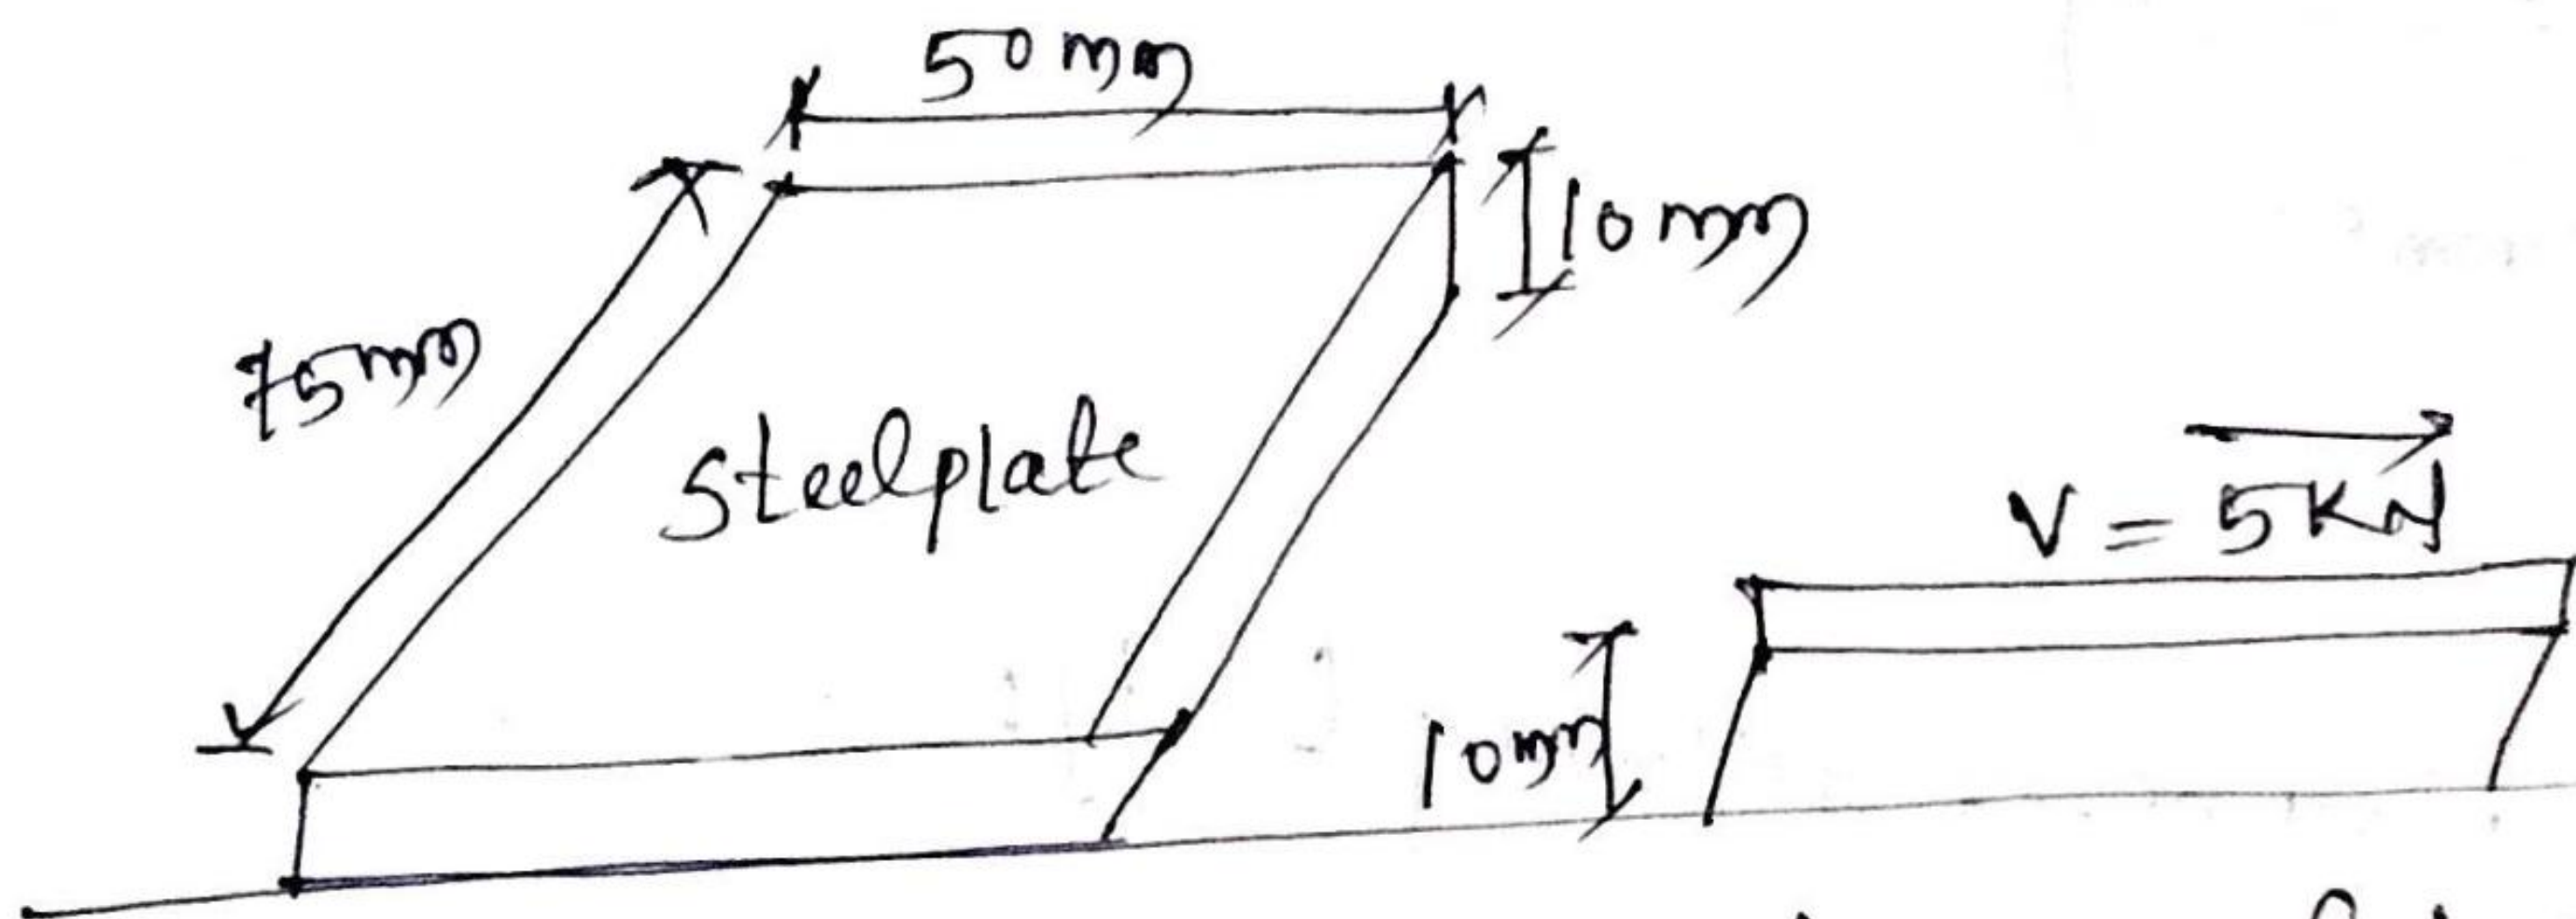 50 mm
10 mm
75mm
Steelplate
V = 5KN
10mm